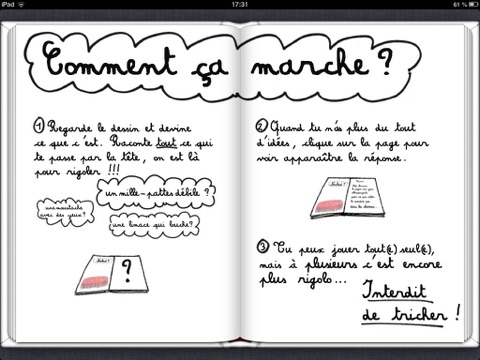 iPad
17:31
61 %
Comment ça marche ?
1 Regarde le dessin et devine
ce que c'est. Raconte tout ce qui
te passe par la tête, on est là
pour rigoler !!!
un mille-pattes débile ?
une moustache
avec des yeux ?
une limace qui louche ?
?
2 Quand tu n'as plus du tout
d'idées, clique sur la page pour
voir apparaître la réponse.
3 Tu peux jouer tout(e) seul(e),
mais à plusieurs c'est encore
plus rigolo...
Interdit
de tricher !